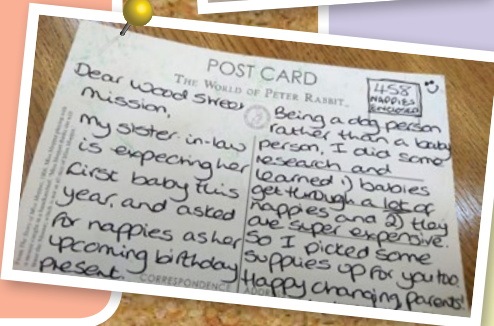 POST CARD
THE WORLD OF PETER RABBIT
Dear Wood Street
Mission,
My sister-in-law
is expecting her
first baby this
year, and asked
for nappies as her
upcoming birthday
present.
458
NAPPIES
ENCLOSED
Being a dog person
rather than a baby
person, I did some
research and
learned 1) babies
get through a lot of
nappies and 2) they
are super expensive.
So I picked some
supplies up for you too.
Happy changing, parents!
CORRESPONDENCE